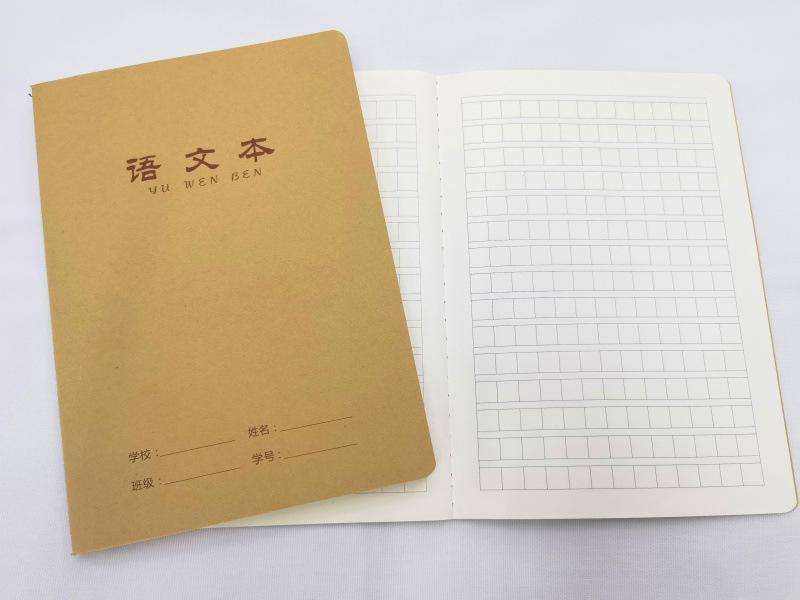 语文本
YU WEN BEN
学校：________ 姓名：________
班级：________ 学号：________